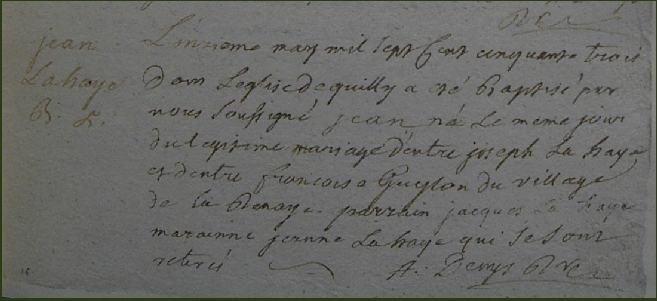 Pre
jean
Lahaye
B. L.
L'onzieme may mil sept cent cinquante trois
dans Leglise de quilly a eté Baptisé par
nous soussigné jean né Le meme jour
du legitime mariage d'entre joseph La haye
et d'entre francoise Guyton du village
de la parrain jacques La haye
maraine jeanne Lahaye qui se sont
retirés A. Denys Pre